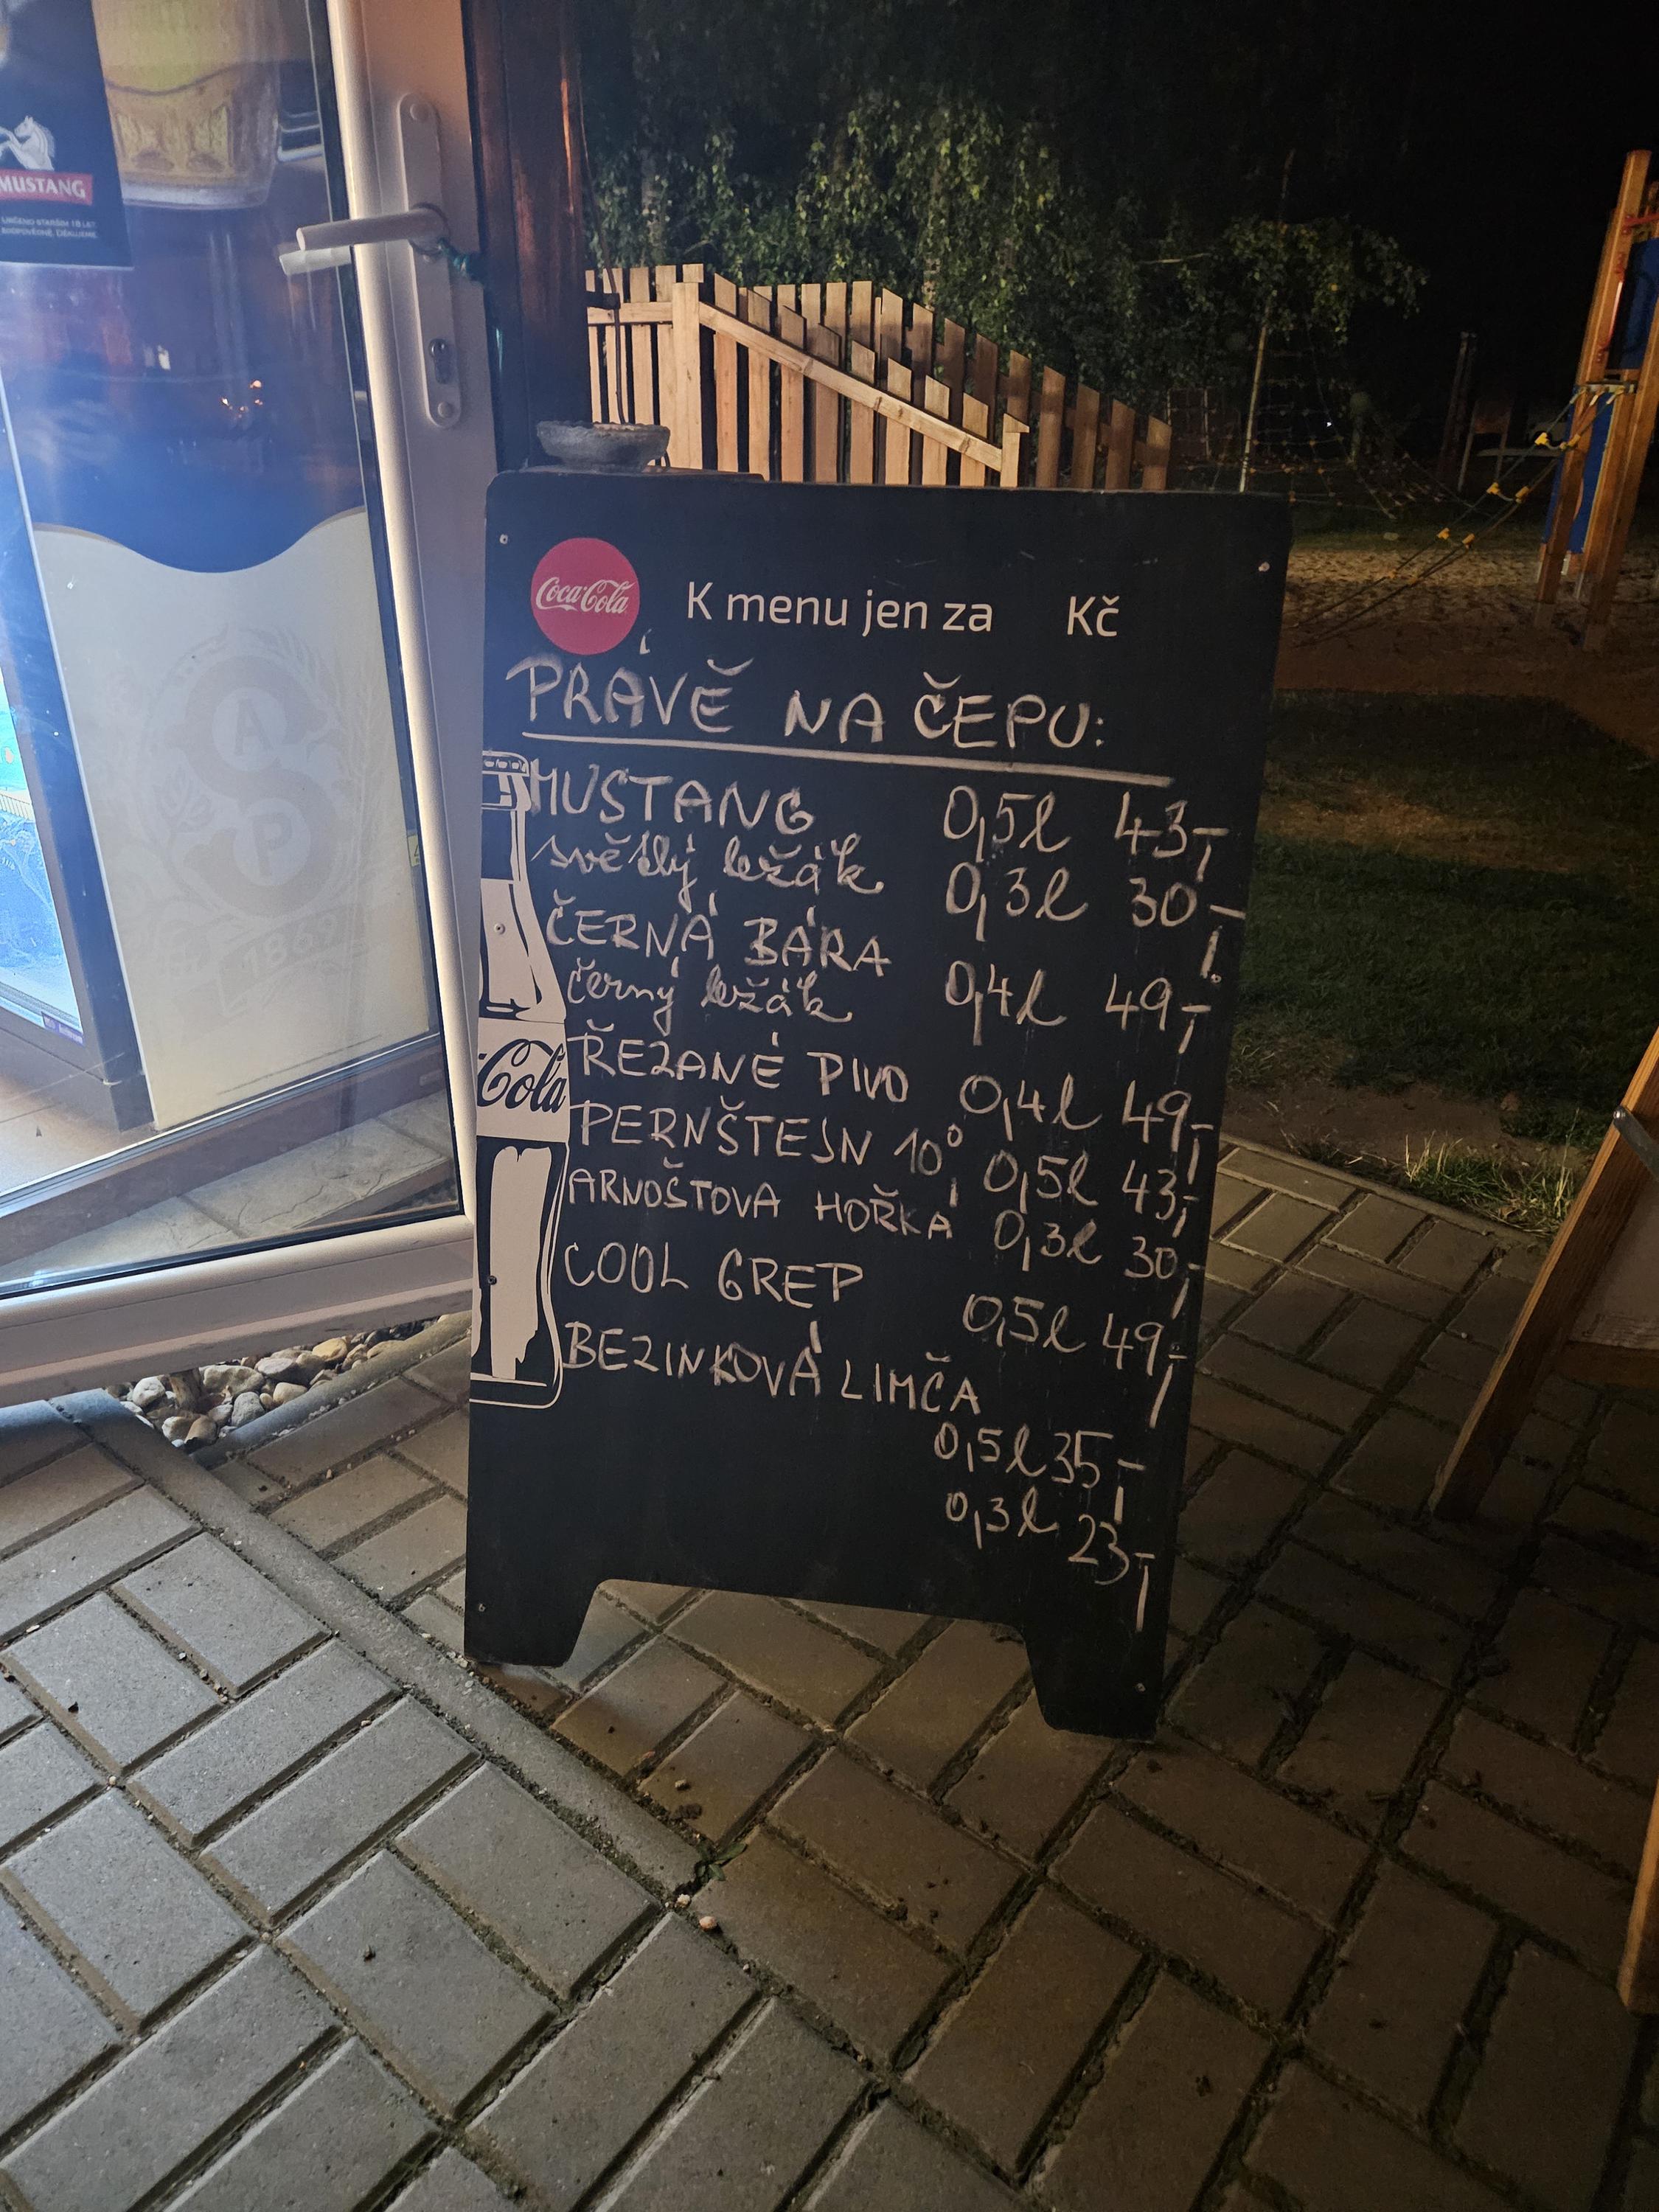 MUSTANG
Coca-Cola
K menu jen za Kč
PRÁVĚ NA ČEPU:
MUSTANG 0,5l 43,-
světlý ležák 0,3l 30,-
ČERNÁ BÁRA
černý ležák 0,4l 49,-
ŘEZANÉ PIVO 0,4l 49,-
PERNŠTEJN 10° 0,5l 43,-
ARNOŠTOVA HOŘKÁ 0,3l 30,-
COOL GREP 0,5l 49,-
BEZINKOVÁ LIMČA
0,5l 35,-
0,3l 23,-
Cola
A
P